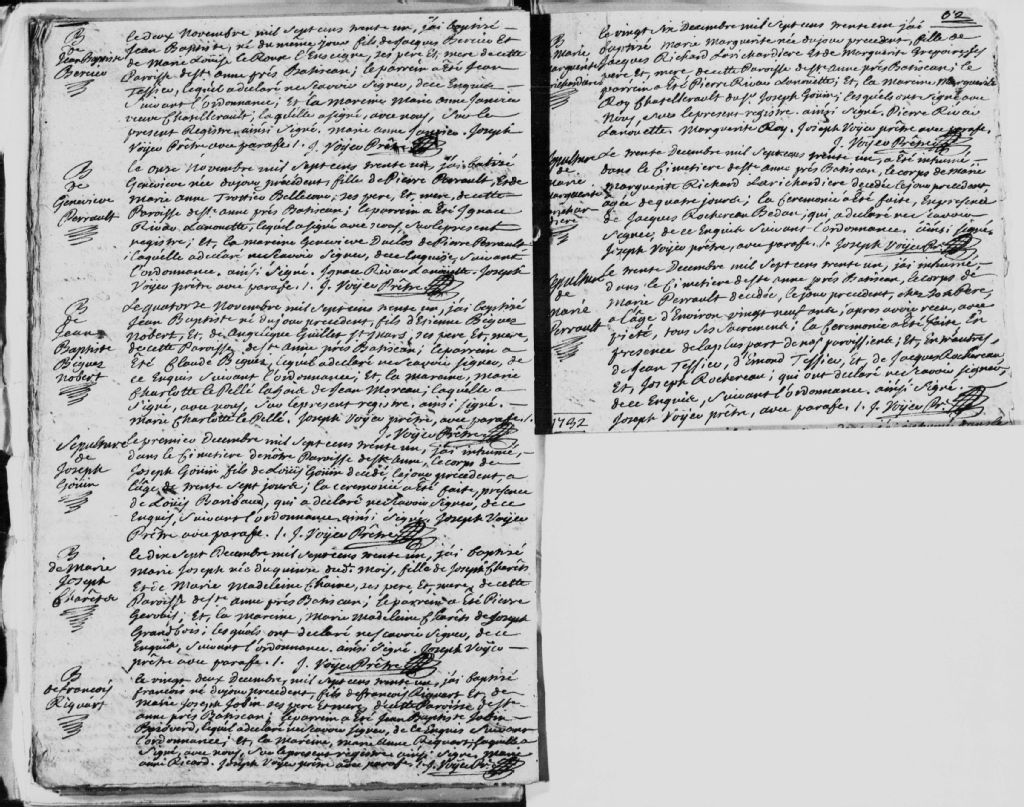 B
de
Jean Baptiste
Bercier
le deux Novembre mil Sept cens trente un, j'ai baptizé
Jean Baptiste, né du même jour fils de Jacques Bercier Et
de Marie Louise le Roux L'Enseigne, ses père Et, mere de cette
Paroisse de Ste anne prés Batiscan; le parrein a Eté Jean
Tessieu, lequel a déclaré ne scavoir Signeu, de ce Enquis
Suivant L'ordonnance; Et, la mareine Marie anne Janvieu
veuve Chatellerault, laquelle a signé, avec nous, Sur le
present Registre. ainsi Signé. Marie anne Janvieu. Joseph
Voÿeu Prêtre avec parafe. /. J. Voÿeu Prêtre
B
de
Genevieve
Perrault
le onze Novembre mil Sept cens trente un, j'ai batizé
Genevieve née du jour précédent fille de Pierre Perrault, Et de
marie anne Trottieu Belleceau, ses père, Et, mere, de cette
Paroisse de Ste anne prés Batiscan; le parrein a Eté Ignace
Rivau Lanouette, lequel a signé avec nous, Sur le present
registre; Et, la mareine Genevieve Duclos de Pierre Perrault
laquelle a declaré ne Scavoir Signeu, de ce Enquise, Suivant
L'ordonnance. ainsi Signé. Ignace Rivau Lanouette. Joseph
Voÿeu prêtre avec parafe. /. J. Voÿeu Prêtre
B
de
Jean
Baptiste
Biguet
Nobert
Le quatorze Novembre mil Sept cens trente un, j'ai baptizé
Jean Baptiste né du jour precedent, fils d'Etienne Biguet
Nobert, Et, de Angelique Guillet St Mars, ses pere Et, mere,
de cette Paroisse, de Ste anne prés Batiscan; le parrein a
Eté Claude Biguet, lequel a declaré ne scavoir signeu, de
ce Enquis Suivant L'ordonnance; Et, la mareine, Marie
Charlotte le Pellé Lahaie de Jean Moreau; laquelle a
Signé, avec nous, Sur le present registre. ainsi signé.
Marie Charlotte le Pellé. Joseph Voÿeu prêtre, avec parafe /.
J. Voÿeu Prêtre
Sepulture
de
Joseph
Goüin
Le premieu Decembre mil Sept cens trente un, j'ai inhumé,
dans le Cimetiere de nôtre Paroisse de Ste anne, le corps de
Joseph Goüin fils de Loüis Goüin decedé, le jour precedent, a
l'âge de trente Sept jours; la ceremonie a Eté faite, presence
de Loüis Baribaud, qui a déclaré ne Scavoir Signeu, de ce
Enquis, Suivant L'ordonnance. ainsi Signé. Joseph Voÿeu
Prêtre avec parafe. /. J. Voÿeu Prêtre
B
de Marie
Joseph
Charêt de
le dix Sept Decembre mil Sept cens trente un, j'ai baptizé
Marie Joseph née du quinze du dit Mois, fille de Joseph Charêts
Et de Marie Madeleine Chaine, ses pere Et, mere, de cette
Paroisse de Ste anne prés Batiscan; le parrein a Eté Pierre
Gervais; Et, la mareine, Marie Madeleine Charêts de Joseph
Grandbois; les quels ont declaré ne Scavoir Signeu, de ce
Enquis, Suivant L'ordonnance. ainsi Signé. Joseph Voÿeu
prêtre avec parafe. /. J. Voÿeu Prêtre
B
de françois
Riquart
Le vingt deux Decembre, mil Sept cens trente un, j'ai baptizé
françois né du jour precedent, fils de françois Riquart Et, de
Marie Joseph Jobin ses pere Et mere, de cette Paroisse de Ste
anne prés Batiscan; le parrein a Eté Jean Baptiste Jobin
lequel a declaré ne scavoir signeu, de ce Enquis Suivant
L'ordonnance; Et, la Mareine, Marie anne Riquart, laquelle a
Signé, avec nous, Sur le present registre. ainsi Signé, Marie
anne Ricard. Joseph Voÿeu prêtre avec parafe. /. J. Voÿeu Prêtre
62
B
Marie
Marguerite
Richardiere
le vingt Six Decembre mil Sept cens trente un, j'ai
baptizé Marie Marguerite née du jour precedent, fille de
Jacques Richard Larichardiere Et de Marguerite Gregoire ses
père Et, mere de cette Paroisse de Ste anne prés Batiscan; le
parrein a Eté Pierre Rivau Lanouëtte; Et, la Mareine, Marguerite
Roy Chatellerault du Sr. Joseph Goüin; lesquels ont Signé avec
Nous, Sur le present registre. ainsi Signé. Pierre Rivau
Lanouette. Marguerite Roy. Joseph Voÿeu prêtre avec parafe.
J. Voÿeu Prêtre
Sepulture
de
Marie
Marguerite
Richar
diere
Le trente Decembre, mil Sept cens trente un, a Eté inhumé,
dans le Cimetiere de Ste anne prés Batiscan, le corps de Marie
Marguerite Richard Larichardiere decedée le jour precedent,
agée de quatre jours; la Ceremonie a Eté faite, En presence
de Jacques Rochereau Bedau; qui a declaré ne Scavoir
Signeu, de ce Enquis Suivant L'ordonnance. ainsi signé
Joseph Voÿeu prêtre, avec parafe. /. Joseph Voÿeu Prêtre
Sepulture
de
Marie
Perrault
Le trente Decembre mil Sept cens trente un, j'ai inhumé
dans le Cimetiere de Ste anne prés Batiscan, le corps de
Marie Perrault decedée, le jour precedent, chez Son Pere,
a l'âge d'Environ vingt neuf ans, apres avoir receu, avec
pieté, tous ses Sacremens; la Ceremonie a Eté faite En
presence de la plus part de nos paroissiens; Et, En'autres,
de Jean Tessieu, d'Emond Tessieu, Et, de Jacques Rochereau,
Et, Joseph Rochereau; qui ont declaré ne Scavoir signeu,
de ce Enquis, Suivant L'ordonnance. ainsi Signé.
Joseph Voÿeu prêtre, avec parafe. /. J. Voÿeu Prêtre
1732